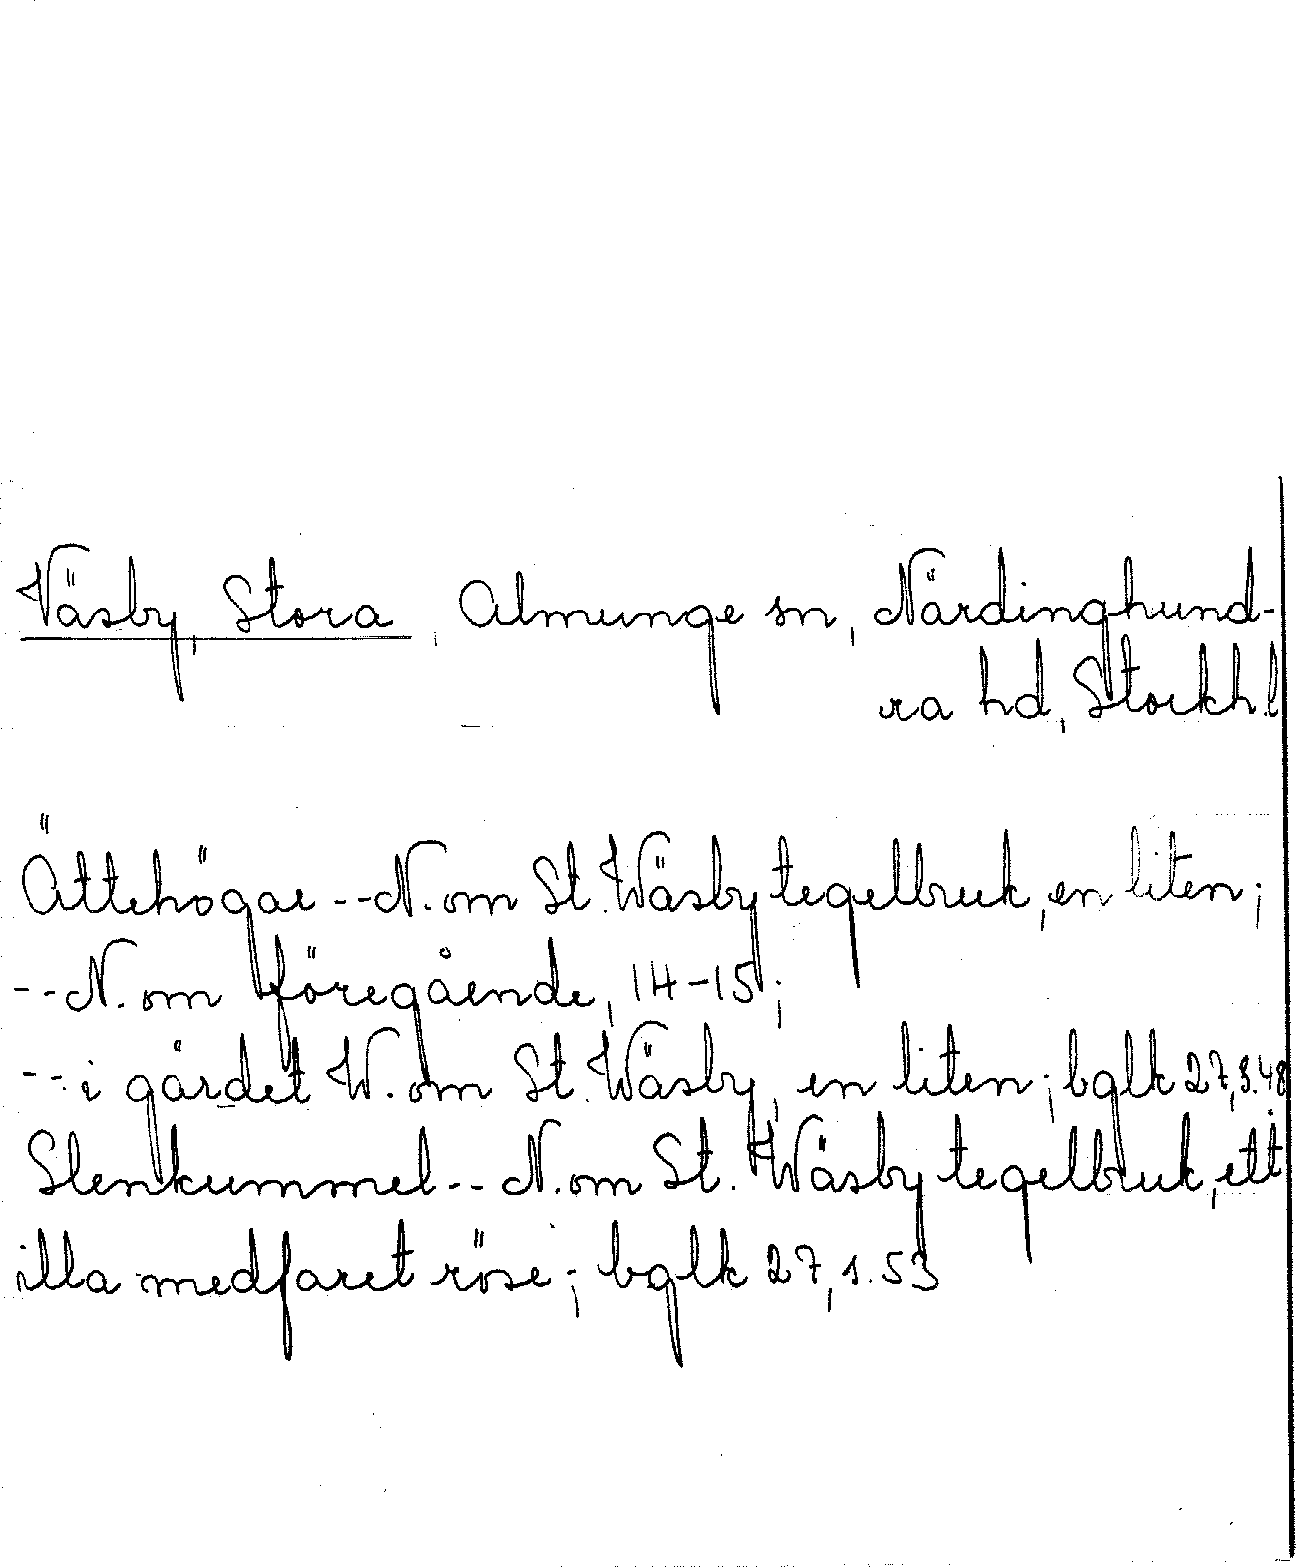 Väsby, Stora, Almunge sn, Närdinghund-
ra hd, Stockh.l
Ättehögar -- N. om St. Wäsby tegelbruk, en liten;
-- N. om föregående, 14-15;
-- i gärdet W. om St. Wäsby, en liten; bglk 27, 3.48
Stenkummel -- N. om St. Wäsby tegelbruk, ett
illa medfaret röse; bglk 27, 1.53